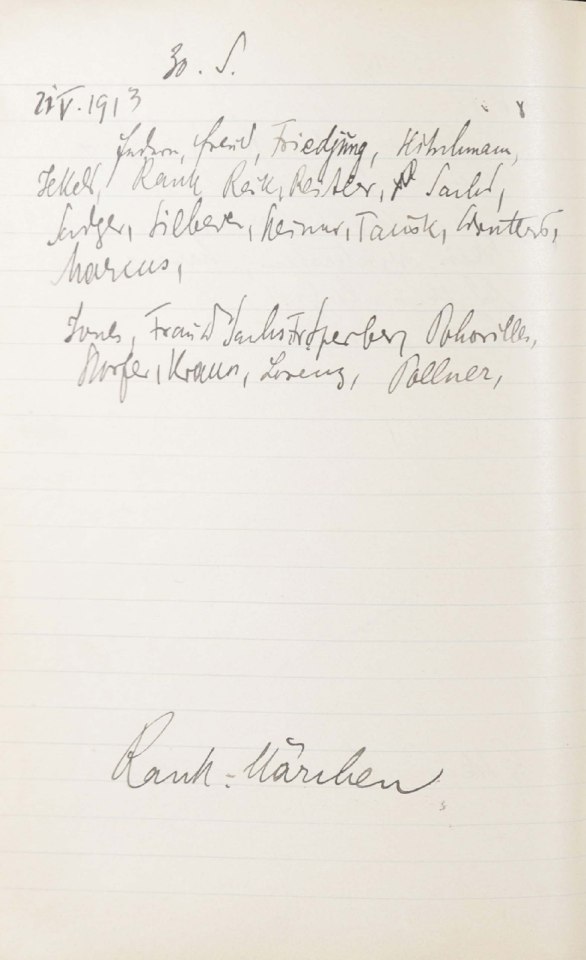 30. S.
21 V. 1913
Federn, Freud, Friedjung, Hitschmann,
Jekels, Rank Reik, Reitler, Dr Sachs,
Sadger, Silberer, Steiner, Tausk, Winterst,
Marcus,
Jones, Frau Dr Sachs Frl Sperber,
Storfer, Kraus, Lorenz, Pollner,
Rank-Märchen